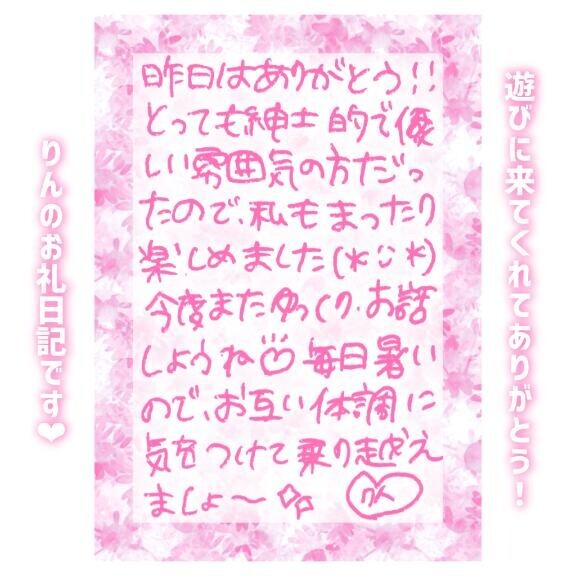 遊びに来てくれてありがとう!
昨日はありがとう!!
とっても紳士的で優
しい雰囲気の方だっ
たので、私もまったり
楽しめました(*¨*)
今度またゆっくり、お話
しようね♡ 毎日暑い
ので、お互い体調に
気をつけて乗り越え
ましょ〜
りん
りんのお礼日記です❤